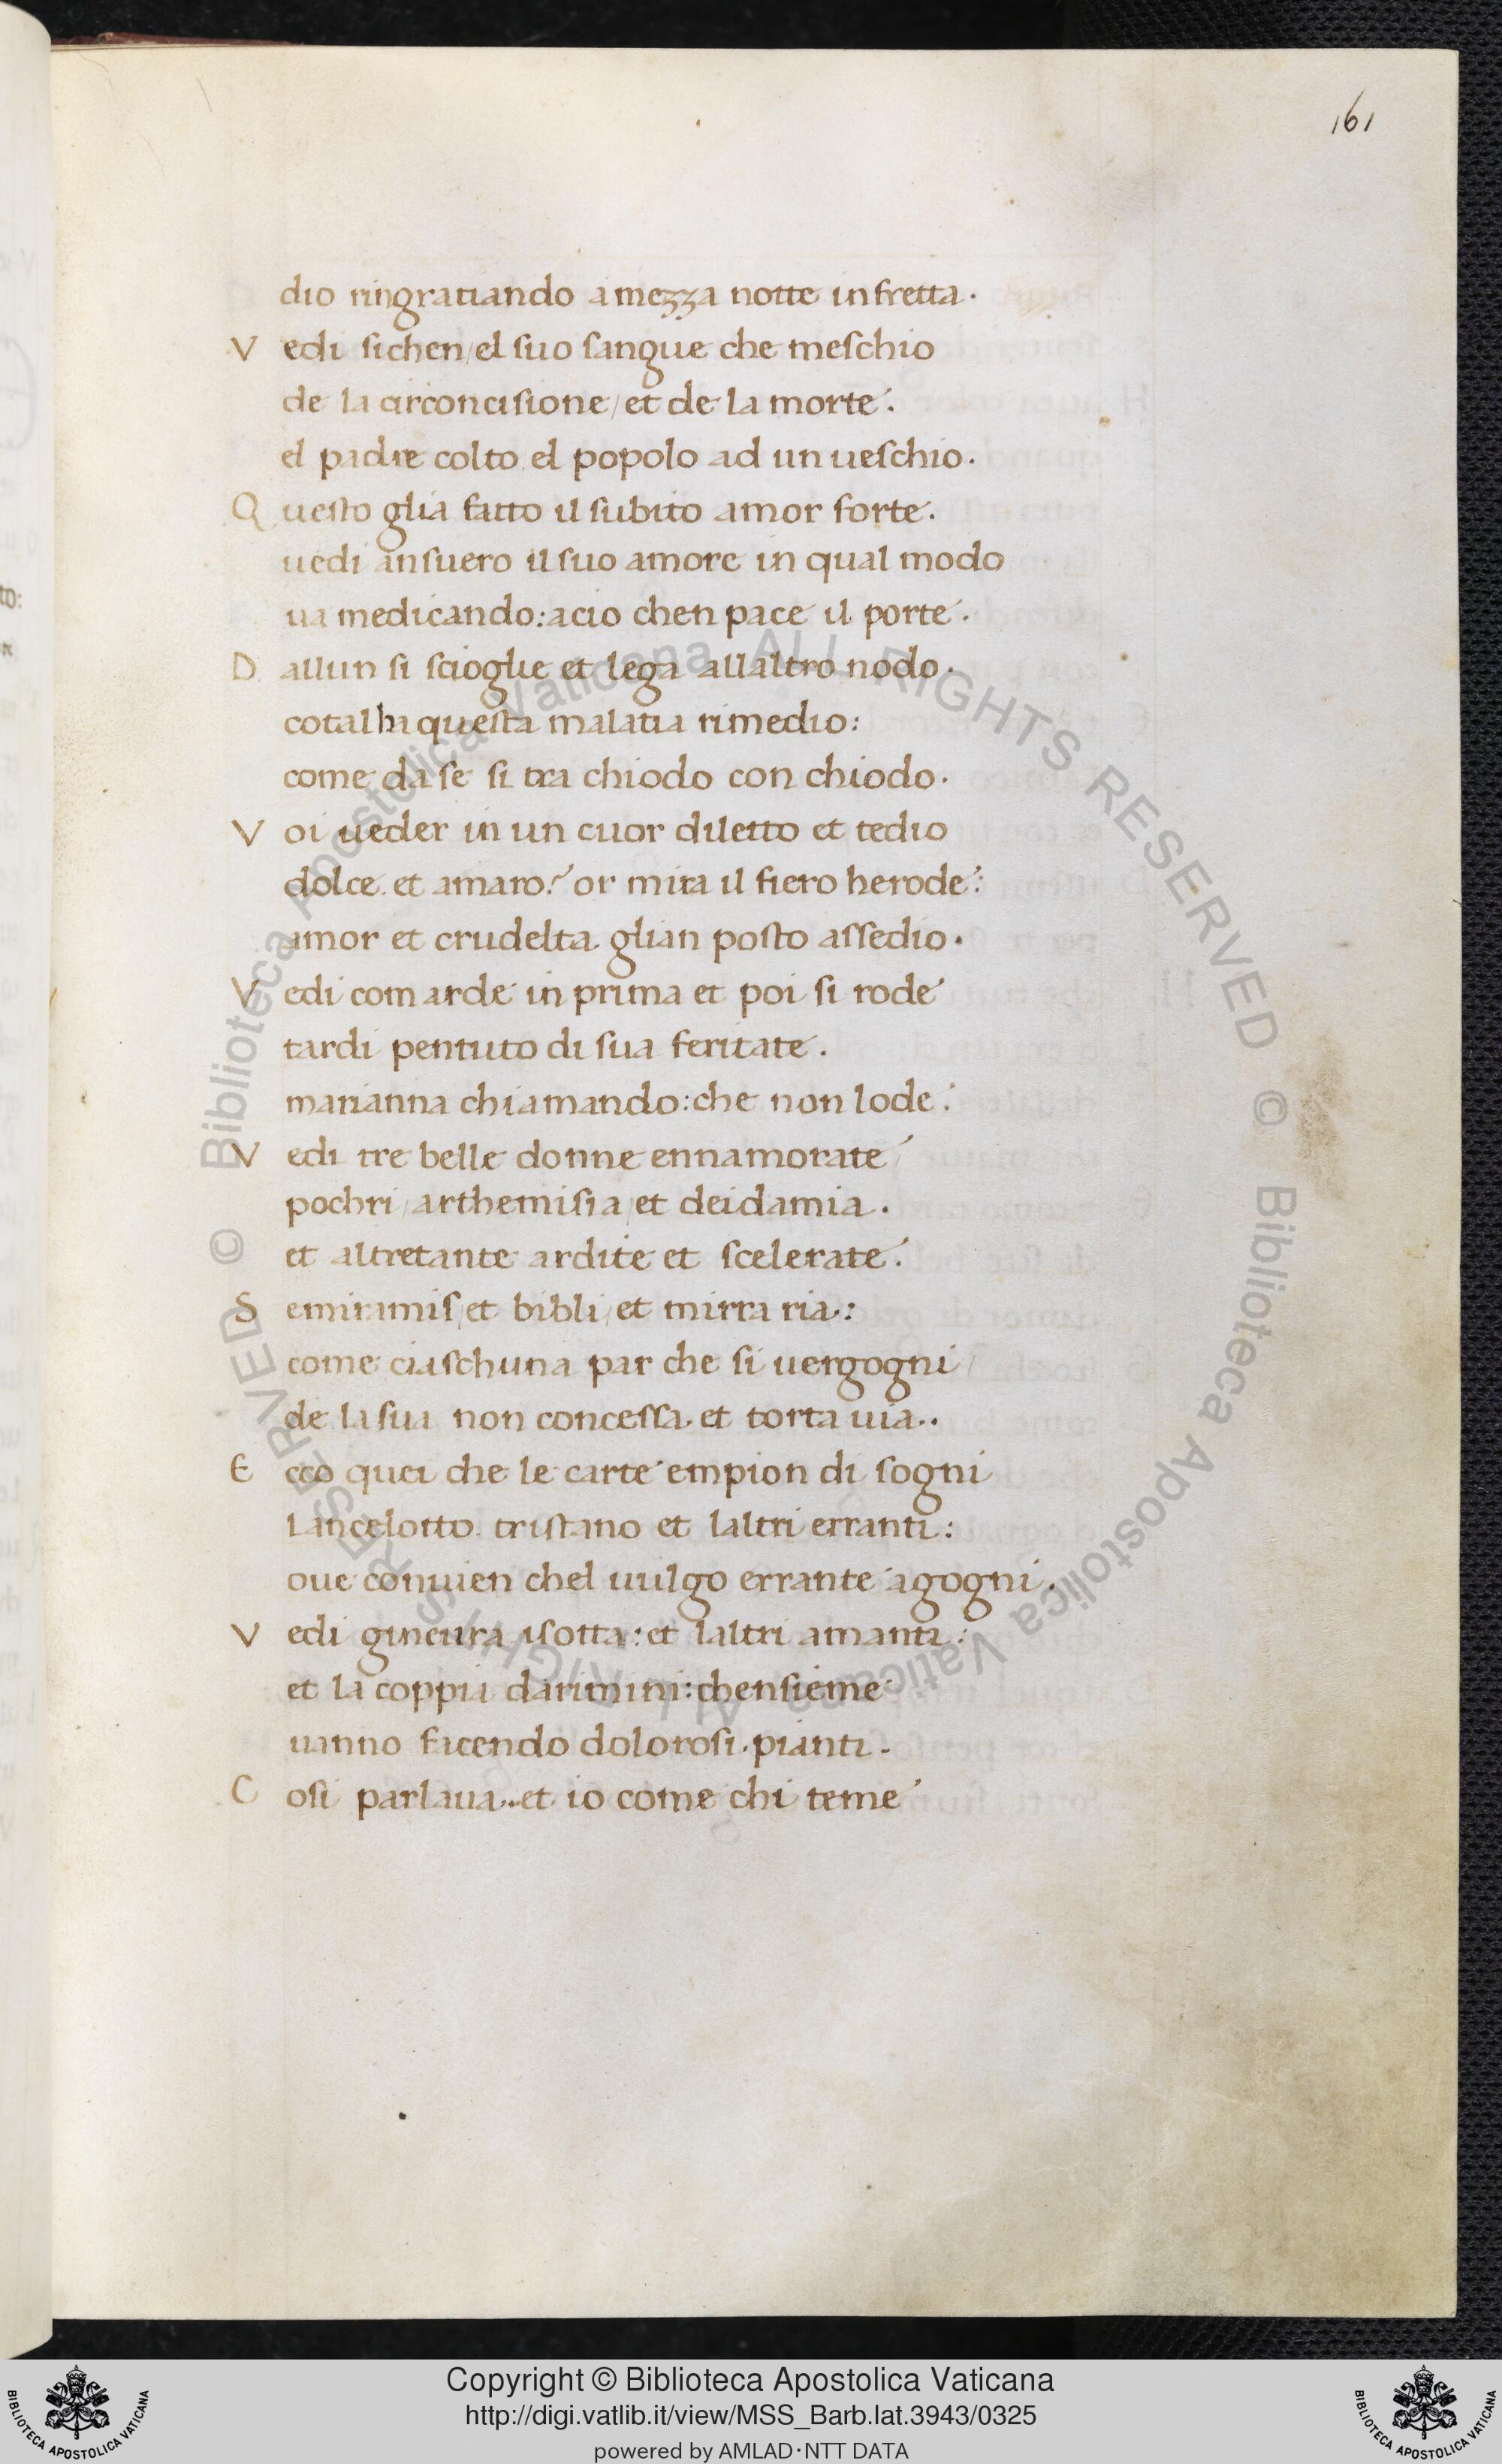 161
dio ringratiando a mezza notte in fretta.
V edi sichen/el suo sangue che meschio
de la circoncisione/et de la morte.
el padre colto el popolo ad un ueschio.
Q uesto glia fatto il subito amor forte.
uedi ansuero il suo amore in qual modo
ua medicando: acio chen pace il porte.
D allun si scioglie et lega allaltro nodo.
cotal ha questa malatia rimedio:
come da se si tra chiodo con chiodo.
V oi ueder in un cuor diletto et tedio
dolce et amaro? or mira il fiero herode:
amor et crudelta glian posto assedio.
V edi com arde in prima et poi si rode
tardi pentuto di sua feritate.
marianna chiamando: che non lode.
V edi tre belle donne ennamorate
pochri/arthemisia/et deidamia.
et altretante ardite et scelerate.
S emiramis/et bibli/et mirra ria:
come ciaschuna par che si uergogni
de la sua non concessa et torta uia..
E cco quei che le carte empion di sogni
Lancelotto tristano et laltri erranti:
oue conuien chel uulgo errante agogni.
V edi gineura isotta: et laltri amanti:
et la coppia darimini: chensieme
uanno facendo dolorosi pianti.
C osi parlaua..et io come chi teme
© Biblioteca Apostolica Vaticana ALL RIGHTS RESERVED © Biblioteca Apostolica Vaticana ALL RIGHTS RESERVED
Copyright © Biblioteca Apostolica Vaticana
http://digi.vatlib.it/view/MSS_Barb.lat.3943/0325
powered by AMLAD·NTT DATA
BIBLIOTECA APOSTOLICA VATICANA
BIBLIOTECA APOSTOLICA VATICANA